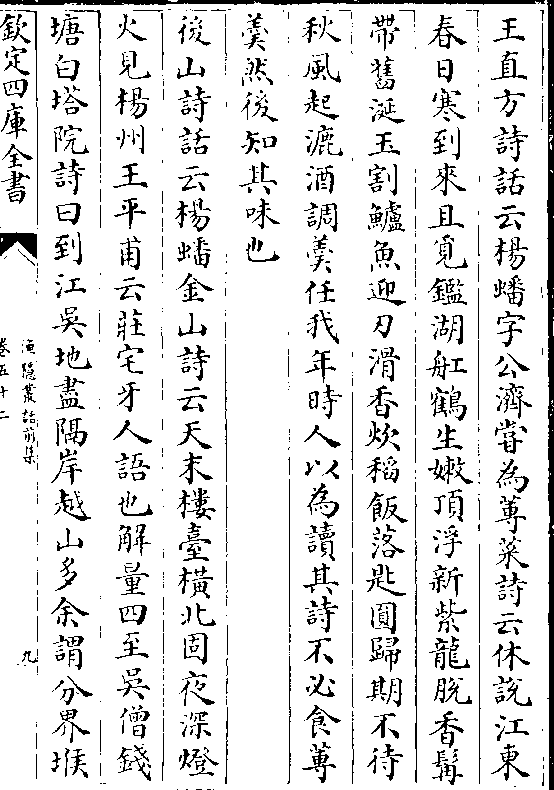 王直方詩話云楊蟠字公濟嘗為蓴菜詩云休説江東
春日寒到來且覓鑑湖船鶴生嫩頂浮新紫龍脫香髯
帶舊涎玉割鱸魚迎刃滑香炊稻飯落匙圓歸期不待
秋風起漉酒調羮任我年時人以為讀其詩不必食蓴
羮然後知其味也
後山詩話云楊蟠金山詩云天末樓臺橫北固夜深燈
火見楊州王平甫云莊宅牙人語也解量四至吳僧錢
塘白塔院詩曰到江吳地盡隔岸越山多余謂分界堠
欽定四庫全書
漁隱叢話前集
卷五十二
九